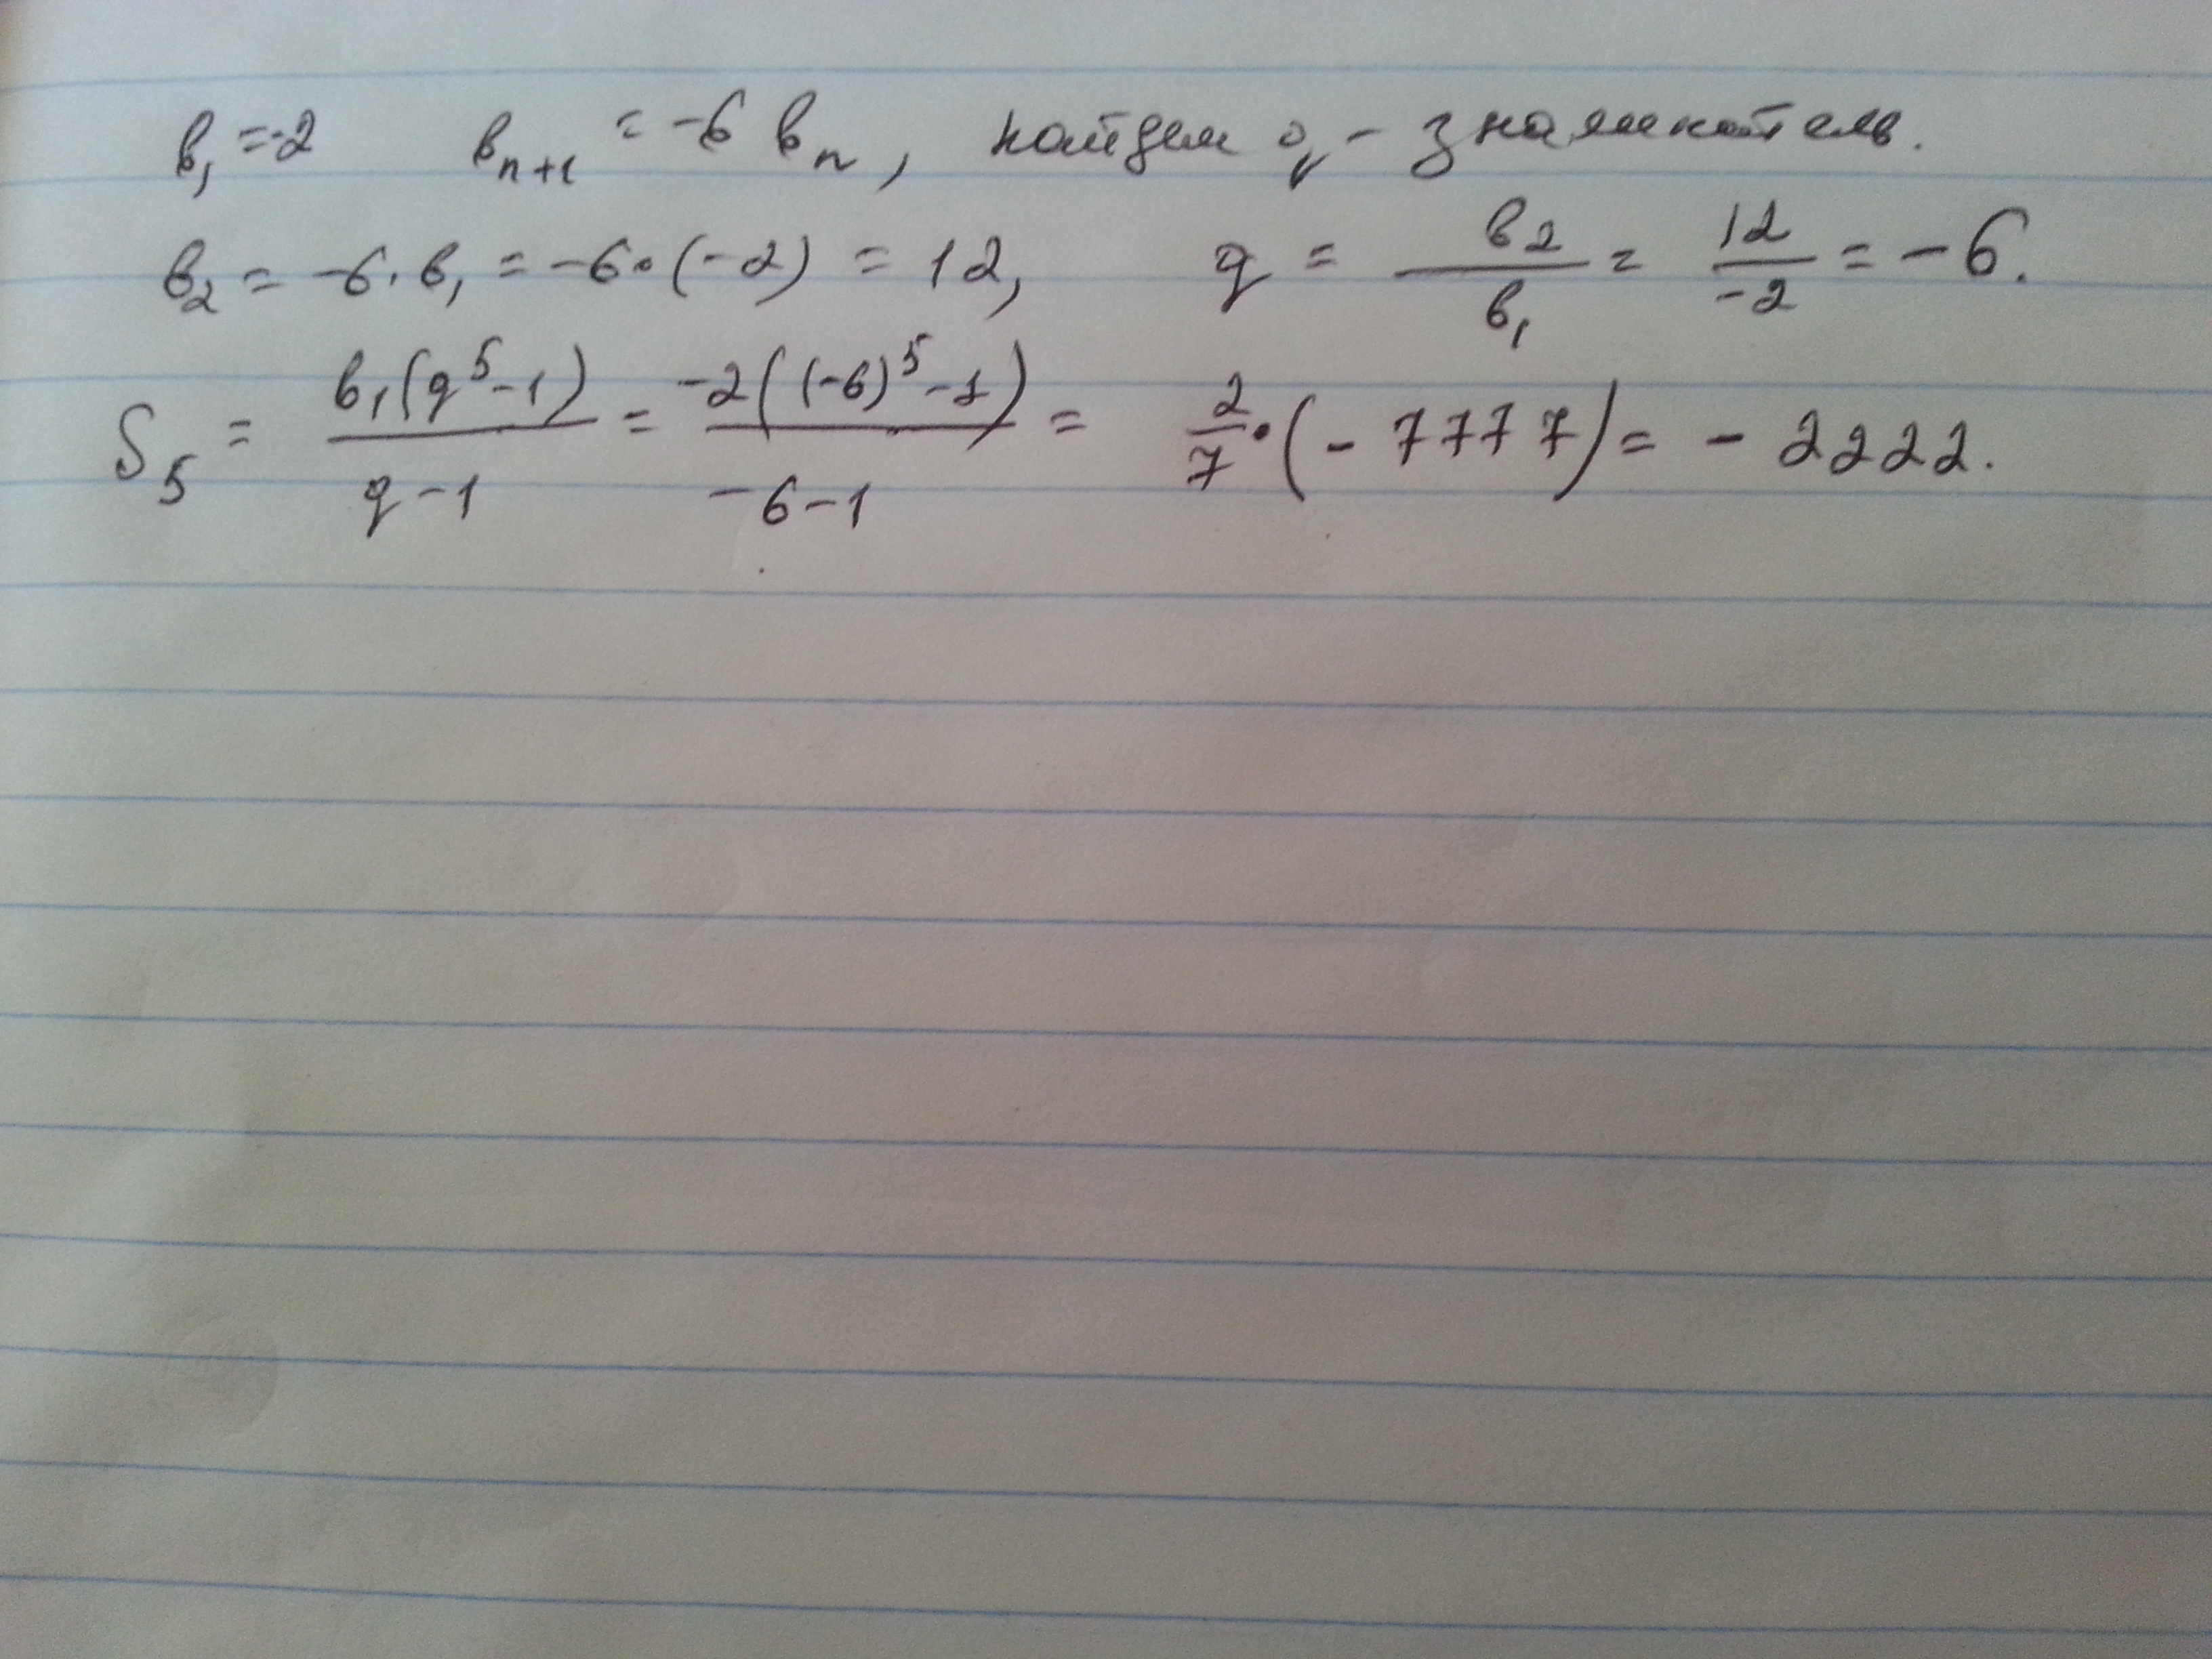 в₁ = -2 вₙ₊₁ = -6 вₙ, найдем q - знаменатель.
в₂ = -6·в₁ = -6·(-2) = 12, q = в₂/в₁ = 12/-2 = -6.
S₅ = в₁(q⁵-1)/q-1 = -2((-6)⁵-1)/-6-1 = 2/7·(-7777) = -2222.